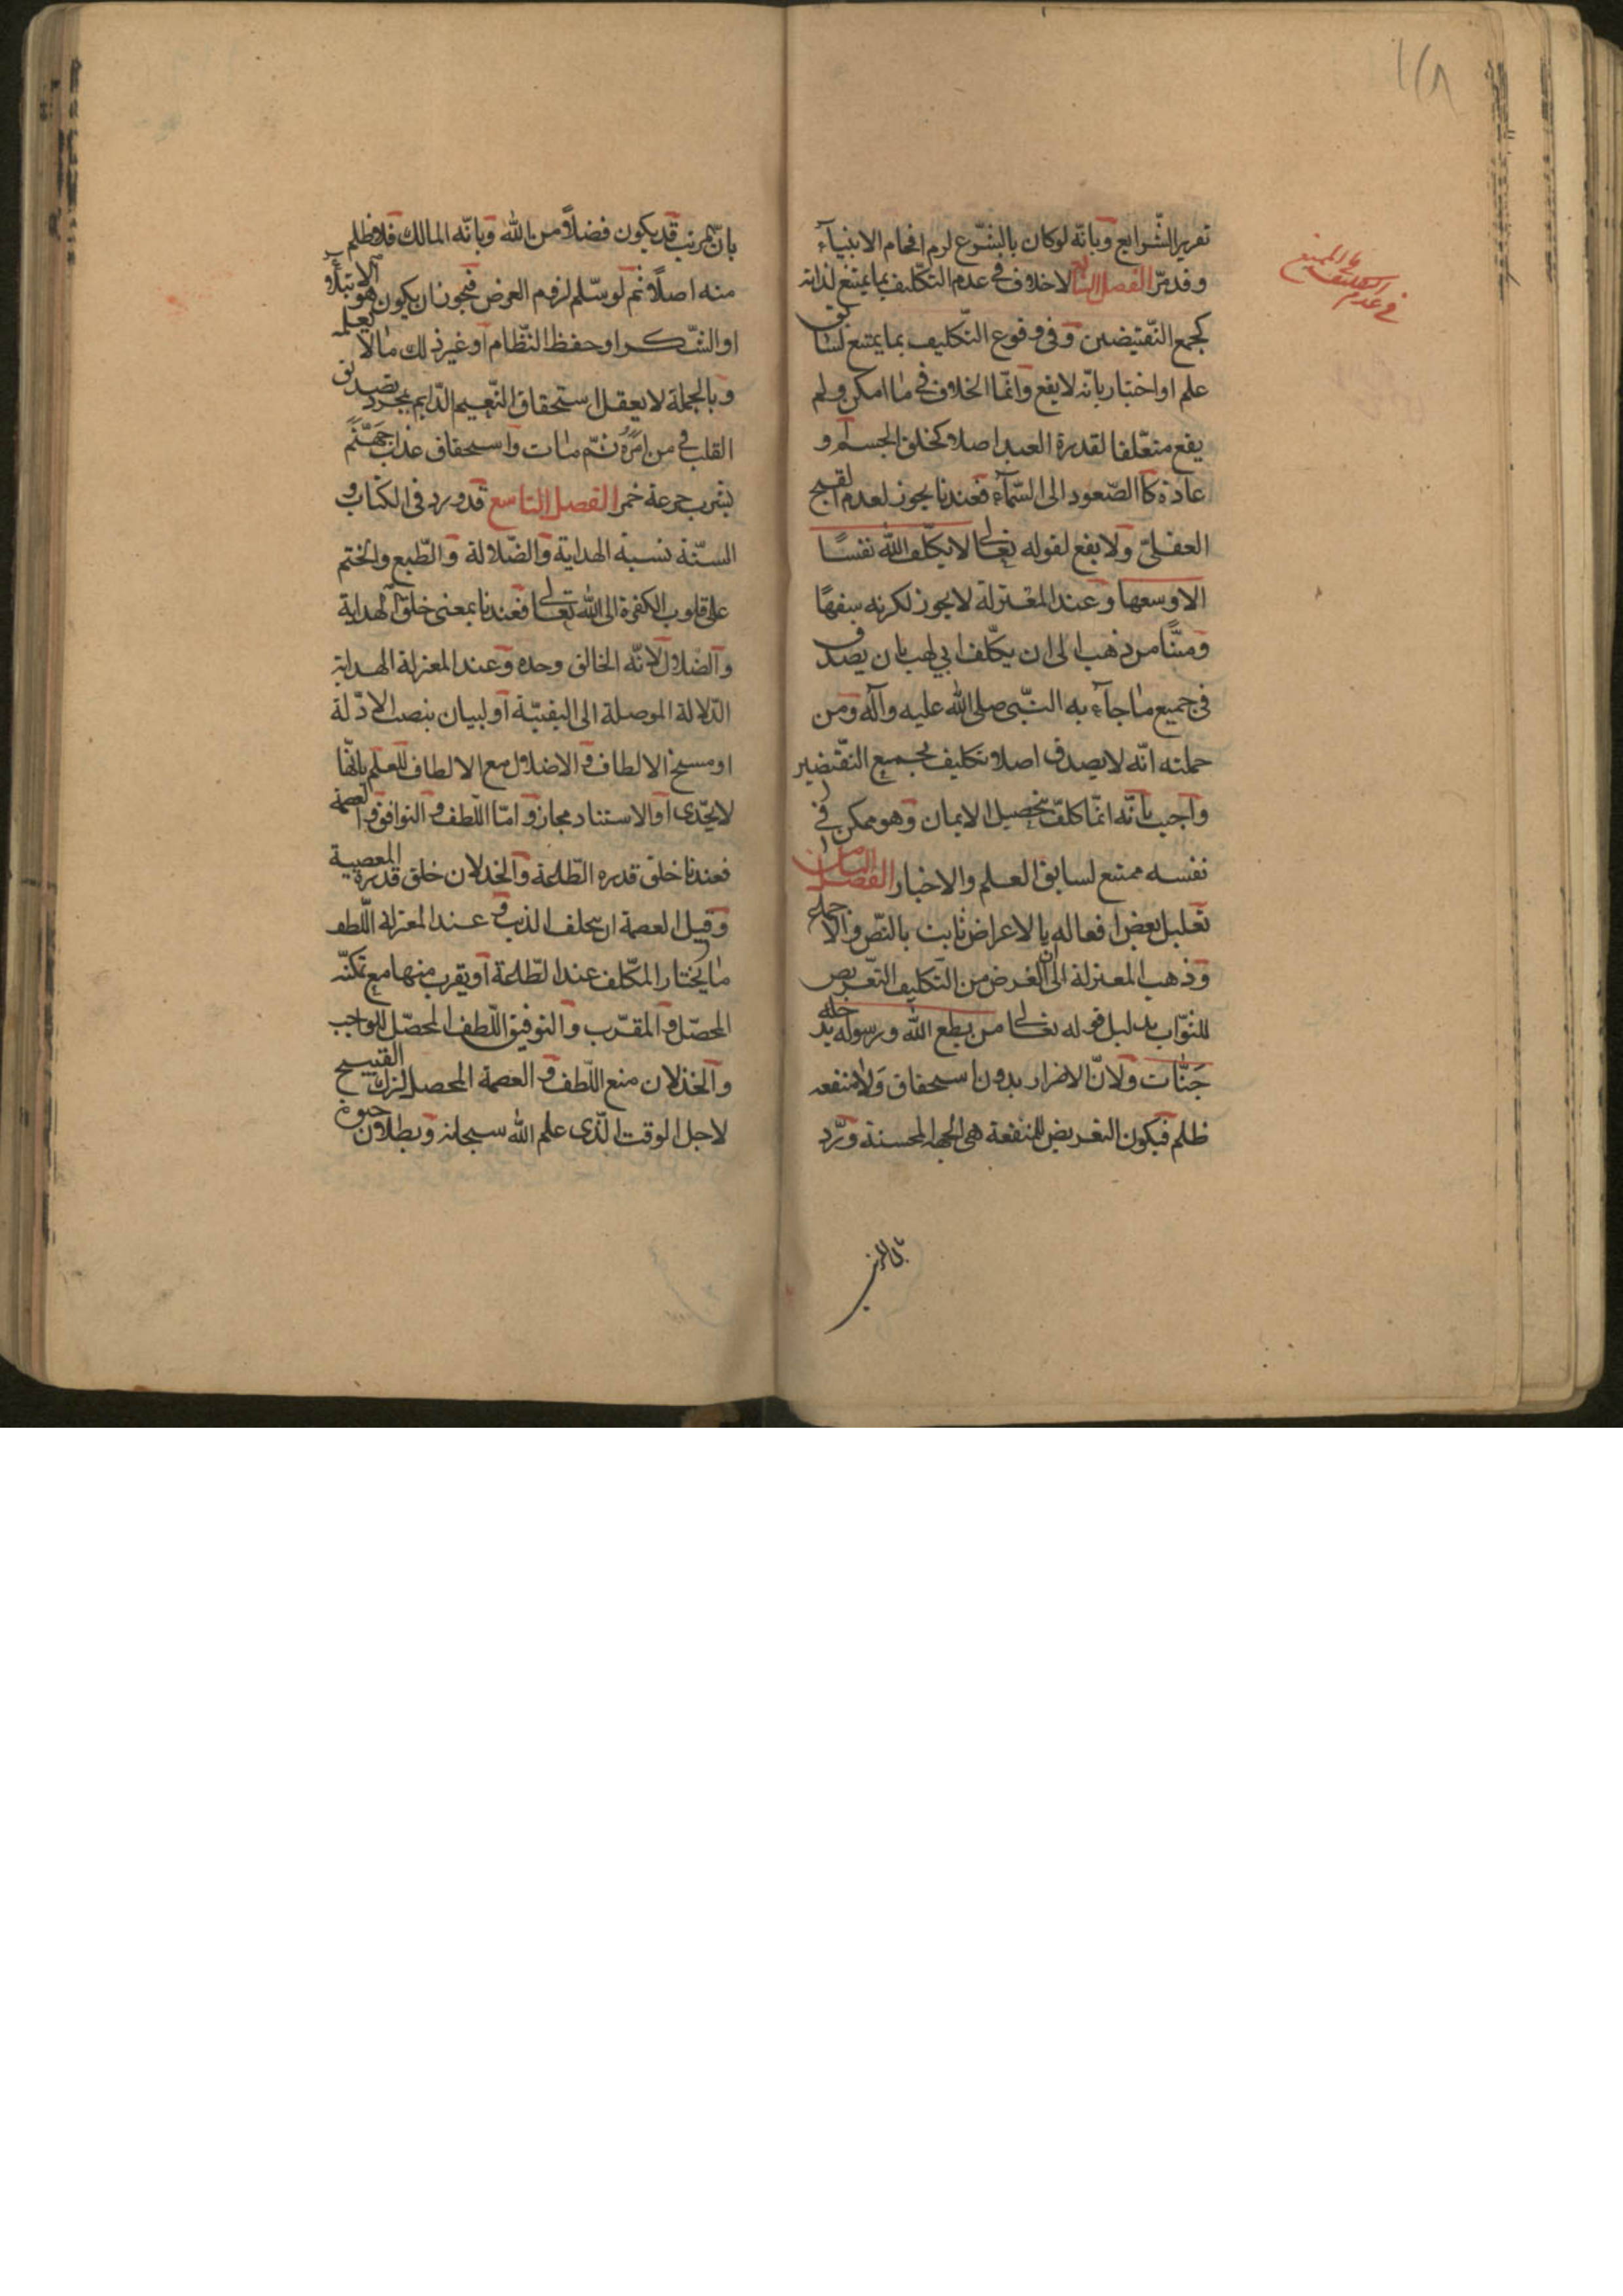 ١١٨
في عدم التكليف بالممتنع
تقرير الشّرايع وبانّه لوكان بالشّرع لزم افحام الانبيآء
وقد مرّ الفصل الثامن لاخلاف في عدم التّكليف بما يمتنع لذاته
كجمع النّقيضين وفى وقوع التّكليف بما يمتنع لسابق
علم او اخبار بانّه لايقع وانمّا الخلاف في ما امكن ولم
يقع متعلّقا لقدرة العبد اصلا كخلق الجسم او
عادة كالصّعود الى السّمآء فعندنا يجوز لعدم القبح
العقلىّ ولا يقع لقوله تعالى لا يكلّف الله نفسًا
الا وسعها وعند المعتزلة لايجوز لكونه سفهًا
ومنّا من ذهب الى ان يكلّف ابي لهب بان يصدق
فى جميع ما جآء به النّبى صلى الله عليه وآله ومن
جملته انّه لايصدق اصلا تكليف بجميع النّقيضين
واجيب بانّه انمّا كلّف تحصيل الايمان وهو ممكن في
نفسه ممتنع لسابق العلم والاخبار الفصل الثامن
تعليل بعض افعاله بالاغراض ثابت بالنّص والاجماع
وذهب المعتزلة الى ان الغرض من التّكليف التّعريض
للثوّاب بدليل قوله تعالى من يطع الله ورسوله يدخله
جنّات ولانّ الاضرار بدون استحقاق ولا منفعه
ظلم فيكون التعريض للمنفعة هى الجهة المحسنة وردّ
بانّ الترتيب
بانّ الترتيب قد يكون فضلاً من الله وبانّه المالك فلا ظلم
منه اصلاً ثم لو سلّم لزوم الغرض فيجوز ان يكون هو الابتلآء
او الشّكر او حفظ النّظام او غير ذلك مما لا نعلمه
وبالجملة لايعقل استحقاق النّعيم الدّايم بمجرد تصديق
القلب في من امن ثمّ مات واستحقاق عذاب جهنّم
بشرب جرعة خمر الفصل التاسع قد ورد فى الكتاب و
السنّة نسبة الهداية والضّلالة والطّبع والختم
على قلوب الكفرة الى الله تعالى فعندنا بمعنى خلق الهداية
والضلال لانّه الخالق وحده وعند المعتزلة الهداية
الدّلالة الموصلة الى البغيّة او لبيان بنصب الادّلة
او مسح الالطاف والاضلال مع الالطاف للعلم بانّها
لايجّدى او الاستناد مجاز وامّا اللّطف والتوافق والعصمة
فعندنا خلق قدره الطّاعة والخذلان خلق قدرة المعصية
وقيل العصمة ان لايخلق الذنب وعند المعتزلة اللّطف
ما يختار المكّلف عند الطّاعة او يقرب منها مع تمكنّه
المحصّل والمقرّب والتوفيق اللّطف المحصّل للواجب
والخذلان منع اللّطف والعصمة المحصل لترك القبيح
لاجل الوقت الّذى علم الله سبحانه وبطلان حيوة